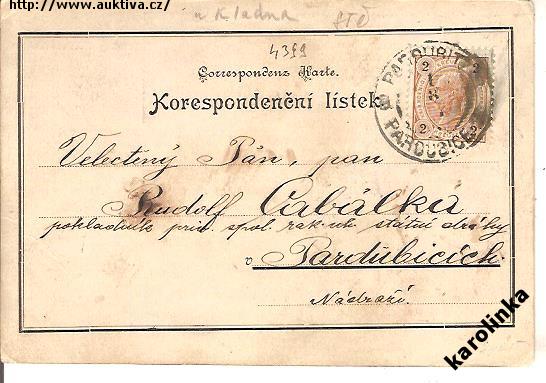 http://www.auktiva.cz/
u Kladna
4399
Correspondenz-Karte.
Korespondenční lístek
2 2
2 2
PARDUBITZ
PARDUBICE
Velectěný Pán, pan
Rudolf Cabálka
pokladník priv. spol. rak. uh. státní dráhy
v Pardubicích.
Nádraží.
karolinka